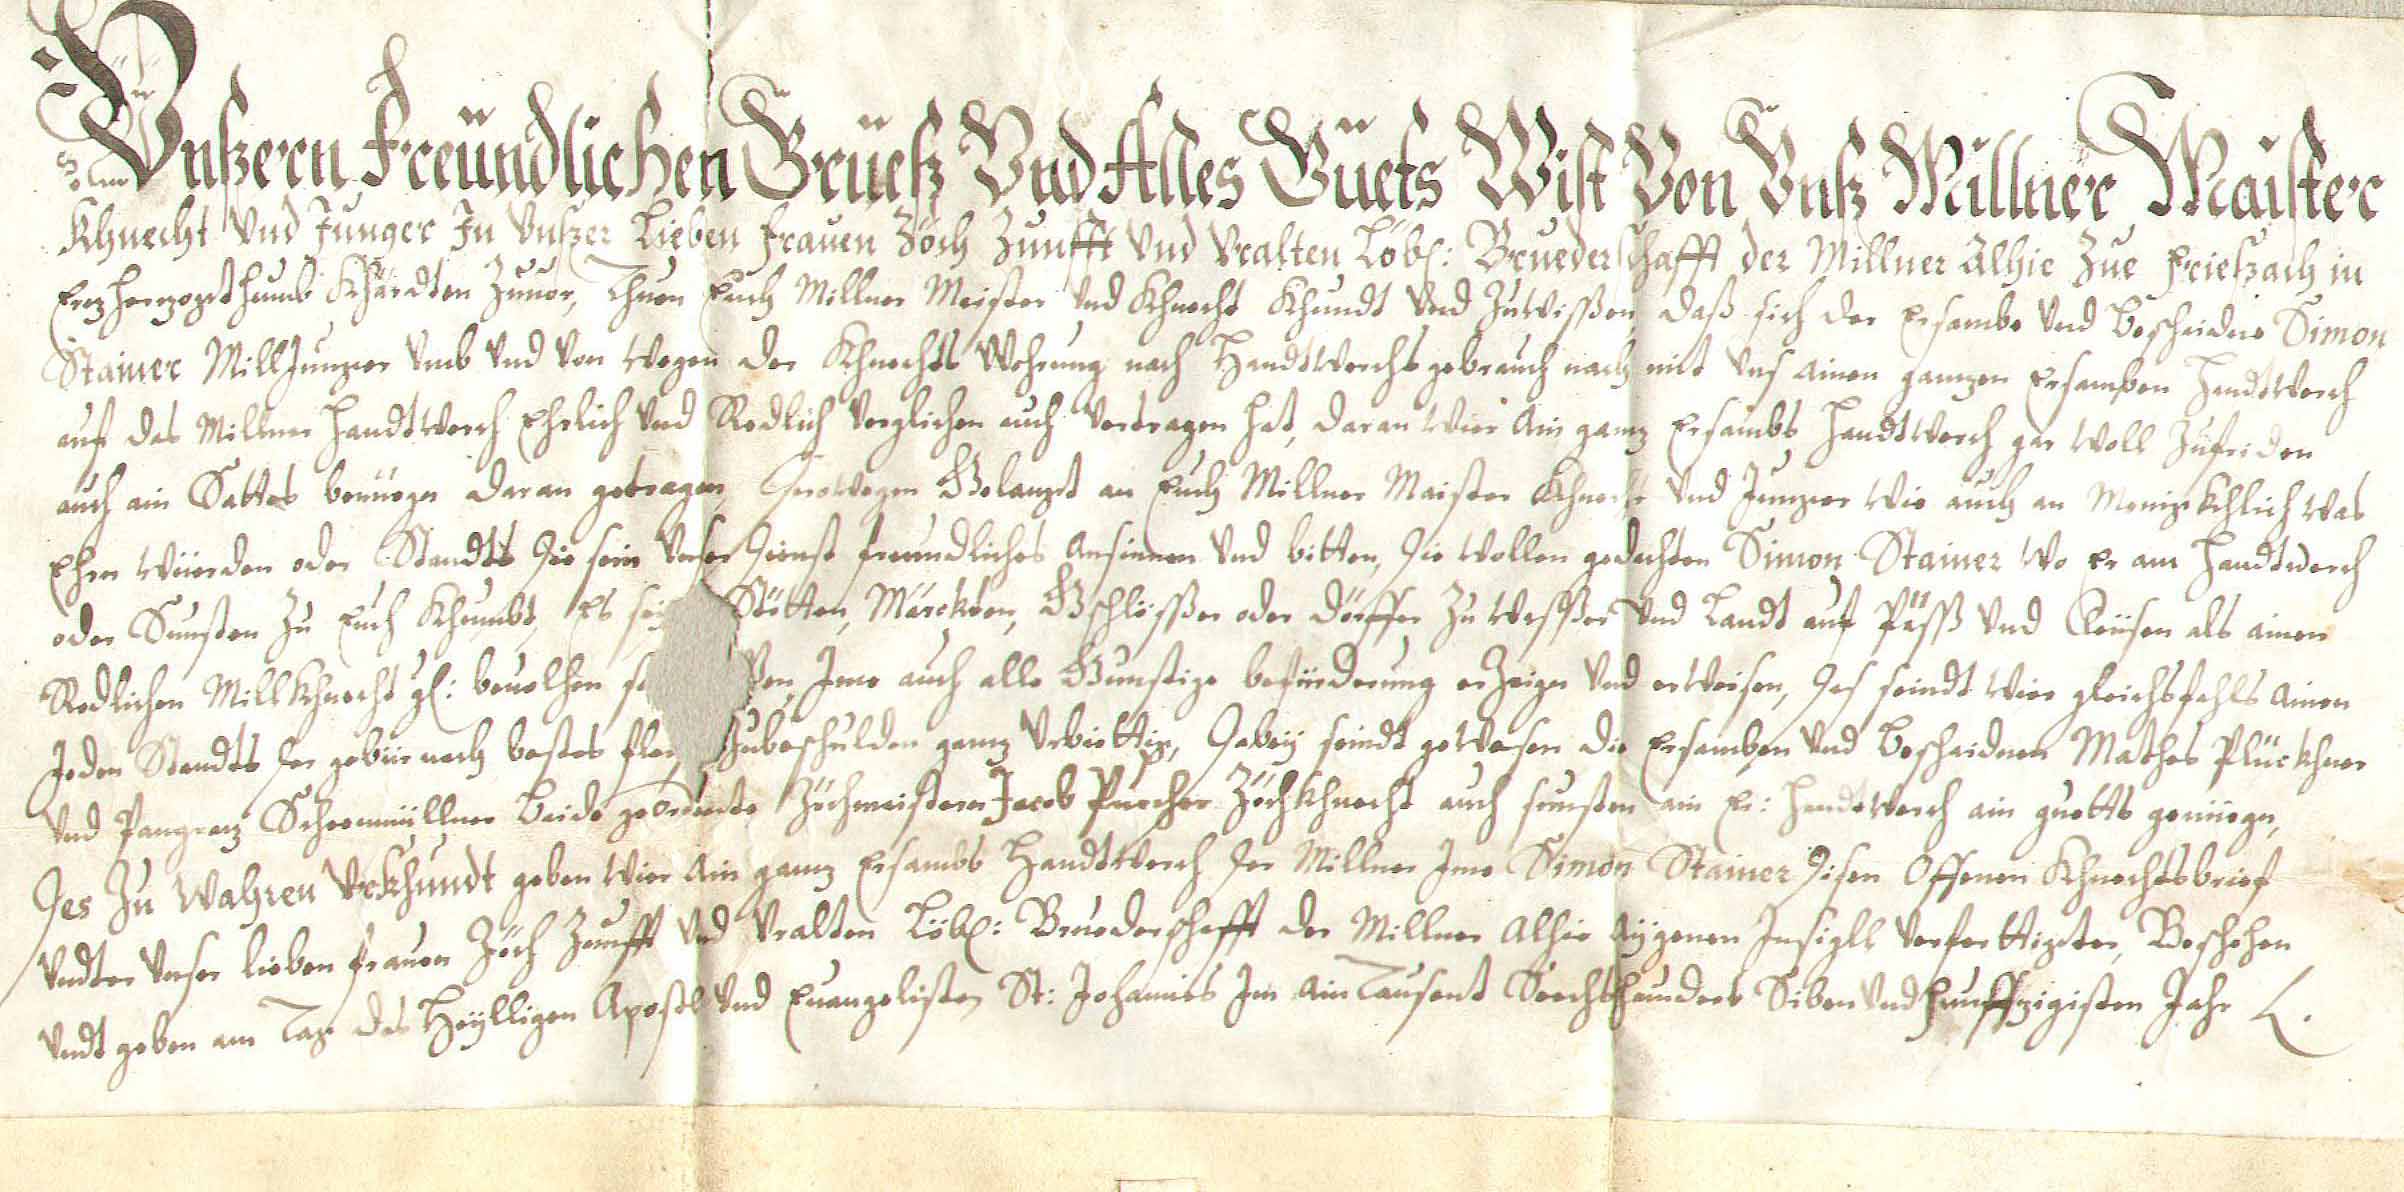 Unßern Freündlichen Grueß Und Alles Guets Wist Von Unß Millner Maister
Khnecht Und Junger In Unßer Lieben Frauen Zöch Zunfft Und Uralten Löbl: Bruederschafft der Millner Alhie Zue Frießach in
Erzherzogthumb Khärdten Zuuor, Thuen Euch Millner Meister Und Khnecht Khundt Und Zuwißen, daß sich der Ersambe Und Beschaidne Simon
Stainer MillJunger Umb Und Von Wegen der Khnechts Wehrung nach Handtwerchs gebrauch nach mit Uns ainen ganzen Ersamben Handtwerch
auf das Millner Handtwerch Ehrlich Und Redlich Verglichen auch Vertragen hat, daran Wier Ain ganz Ersambs Handtwerch gar Woll Zufriden
auch ain Sattes benüegn daran getragen, Derowegen Gelangt an Euch Millner Maister Khnecht Und Junger Wie auch an Menigkchlich Was
Ehrn Würden oder Standts Die sein Unser Dienst freundliches Ansinnen Und bitten, Die Wollen gedachten Simon Stainer Wo Er am Handtwerch
oder Sunsten Zu Euch Khumbt, Es sey Stötten, Märckten, Gschlösßer oder Dörffer Zu Wasßer Und Landt auf Päsß Und Cleüsen als ainen
Redlichen MillKhnecht gl: beuolhen Ime auch alle Gunstige befürderung erZeign Und erWeisen, Das seindt Wier gleichsfahls ainen
Jeden Standts Der gebür nach bestes Zubeschulden ganz Urbiettig, Dabey seindt geWesen die Ersamben Und Beschaidnen Mathes Plückhner
Und Pangraz Schrenmüllner Beide Zöchmaistern Jacob Purcher ZöchKhnecht auch sunsten ain Er: Handtwerch ain guetts genüegn,
Des Zu Wahren Urkhundt geben Wier Ain ganz Ersambs Handtwerch Der Millner Ime Simon Stainer Disen Offenen Khnechtsbrief
Undter Unser lieben frauen Zöch Zunfft Und Uralten Löbl: Bruederschafft der Millner Alhie Aÿgenen Insigll Verferttigter, Beschehen
Undt geben am Tag des Heÿlligen Apostl Und Euangelisten St: Johannes Im Ain Tausent Sechshundert Siben Und Funffzigisten Jahr